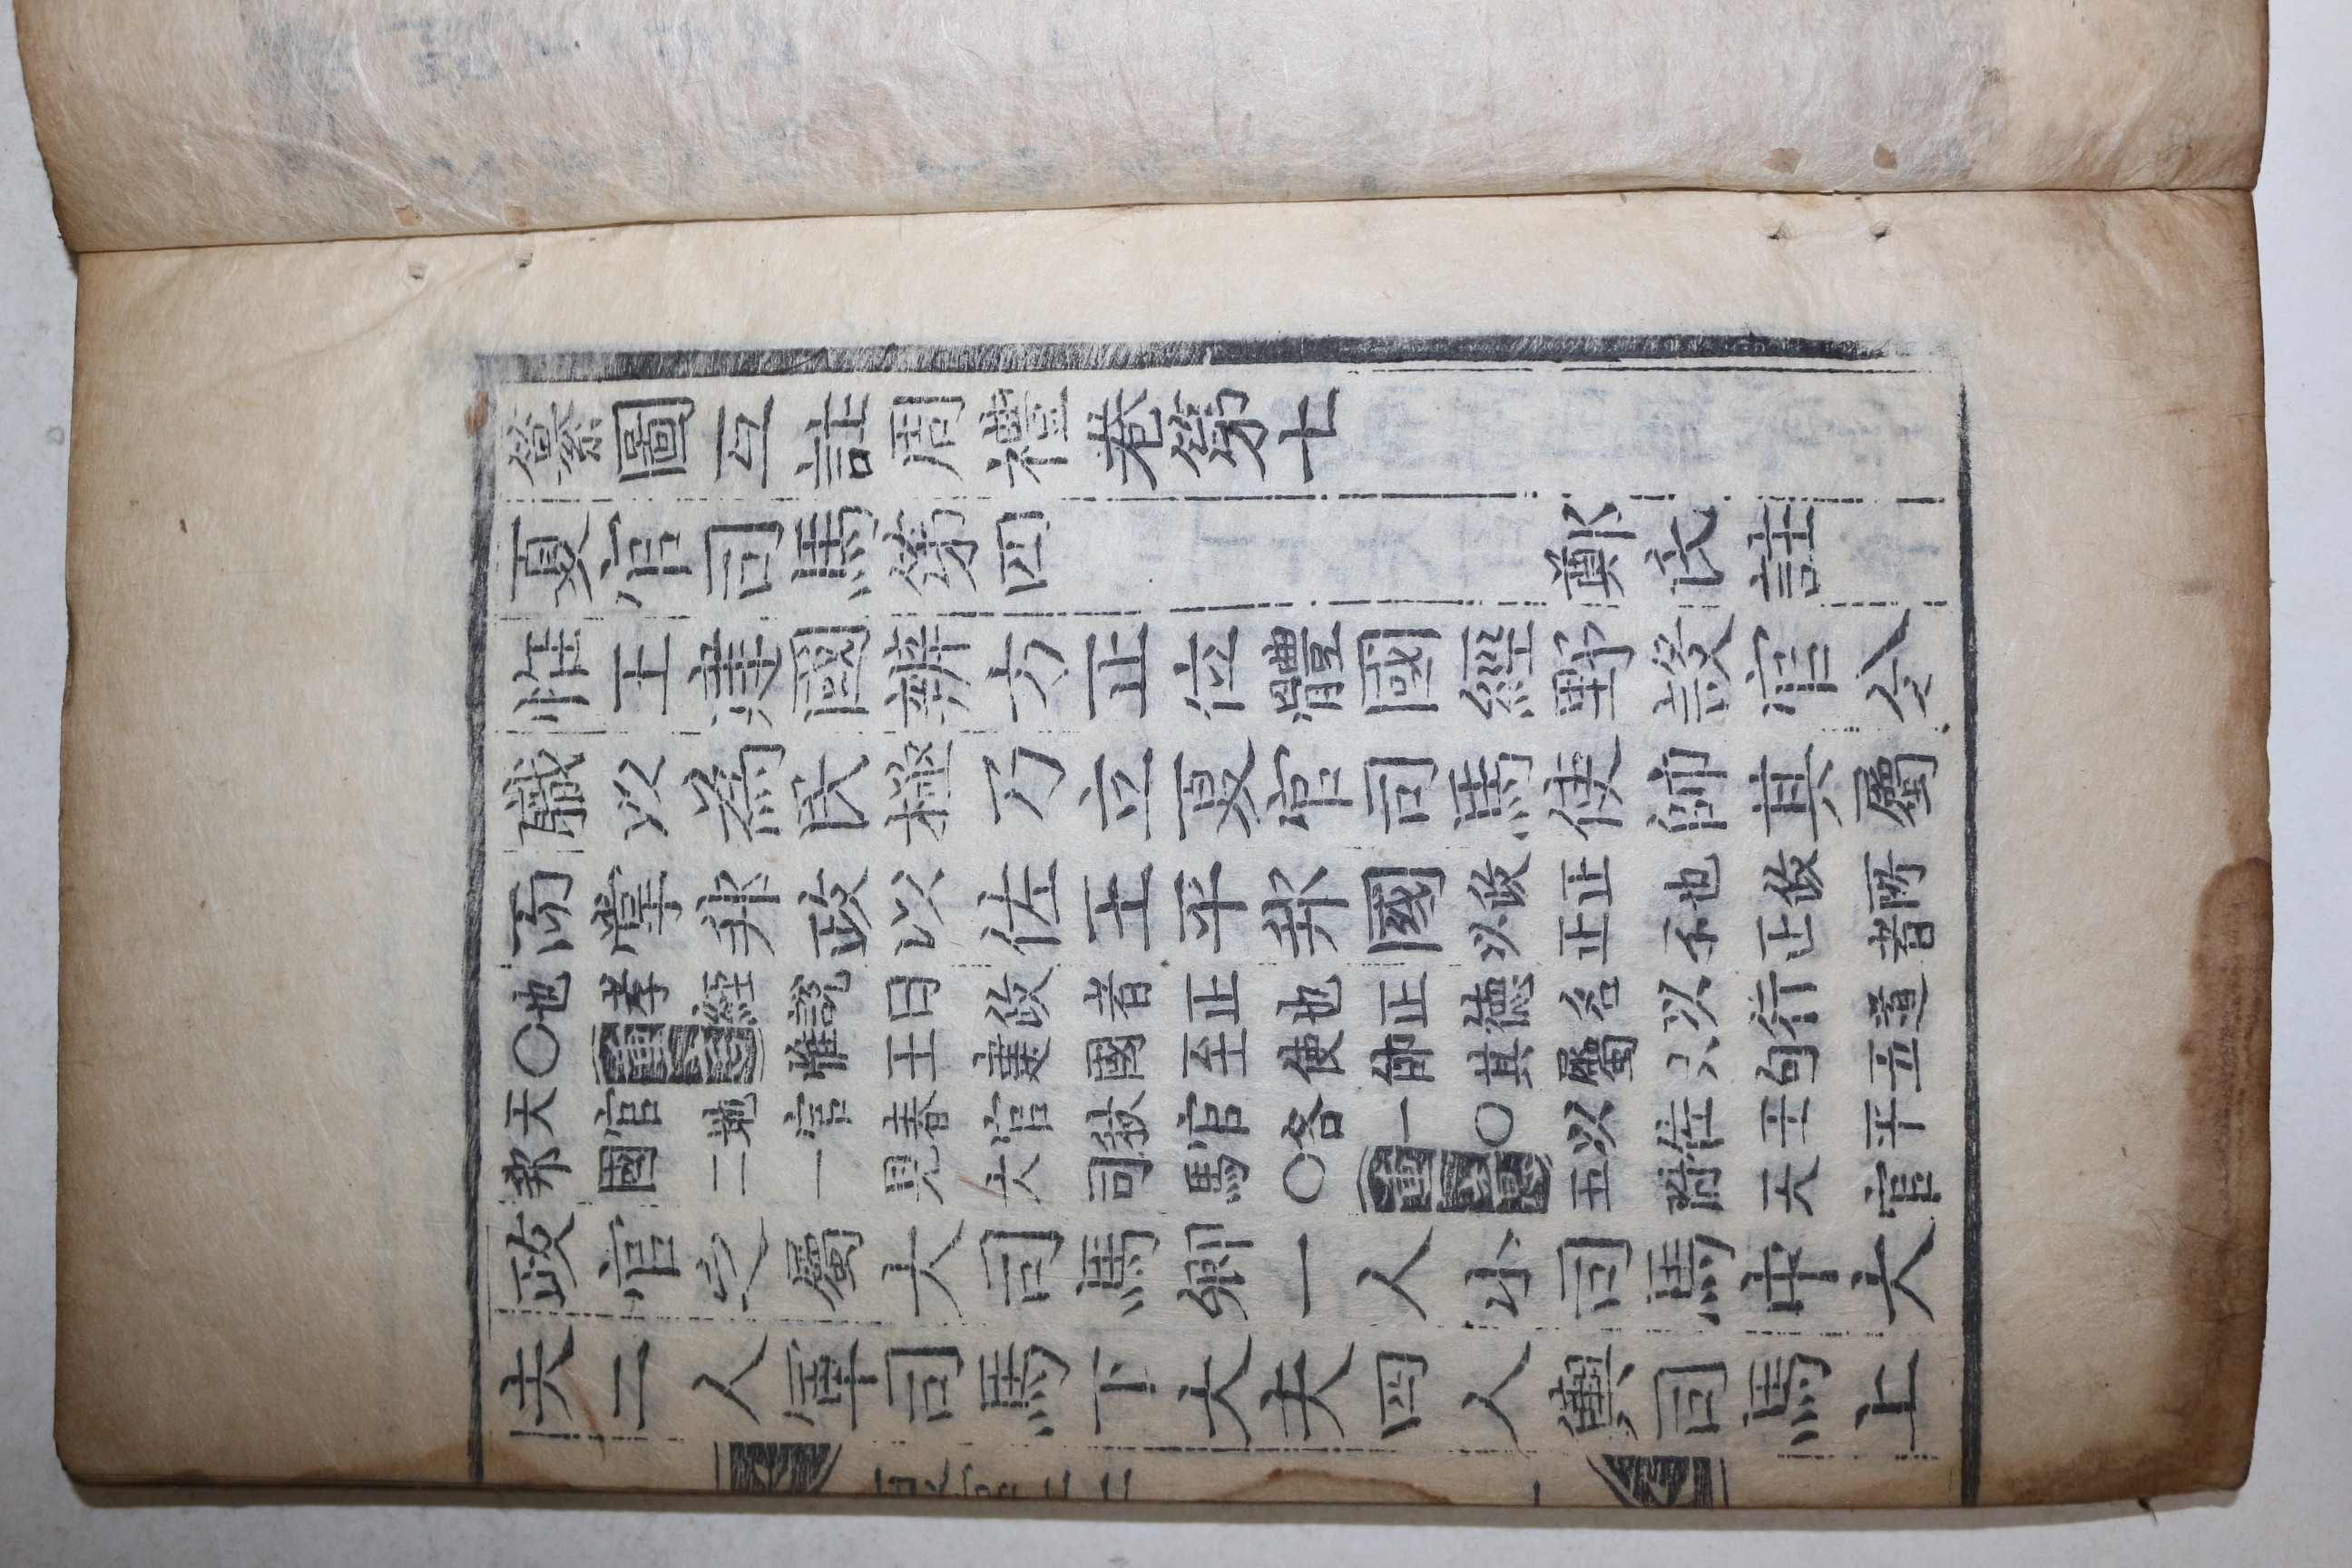 纂圖互註周禮卷第七
夏官司馬第四 鄭氏註
惟王建國辨方正位體國經野設官分
職以為民極乃立夏官司馬使帥其屬
而掌邦政以佐王平邦國政正也政所
以正不正者
也孝經說曰政者正也正德名以行道
○重言惟王建國至使帥其屬只句五
天官地官春官秋官各一○以佐王平
邦國二一見大司馬○重意五附天官
政官之屬大司馬卿一人小司馬中大
夫二人軍司馬下大夫四人輿司馬上